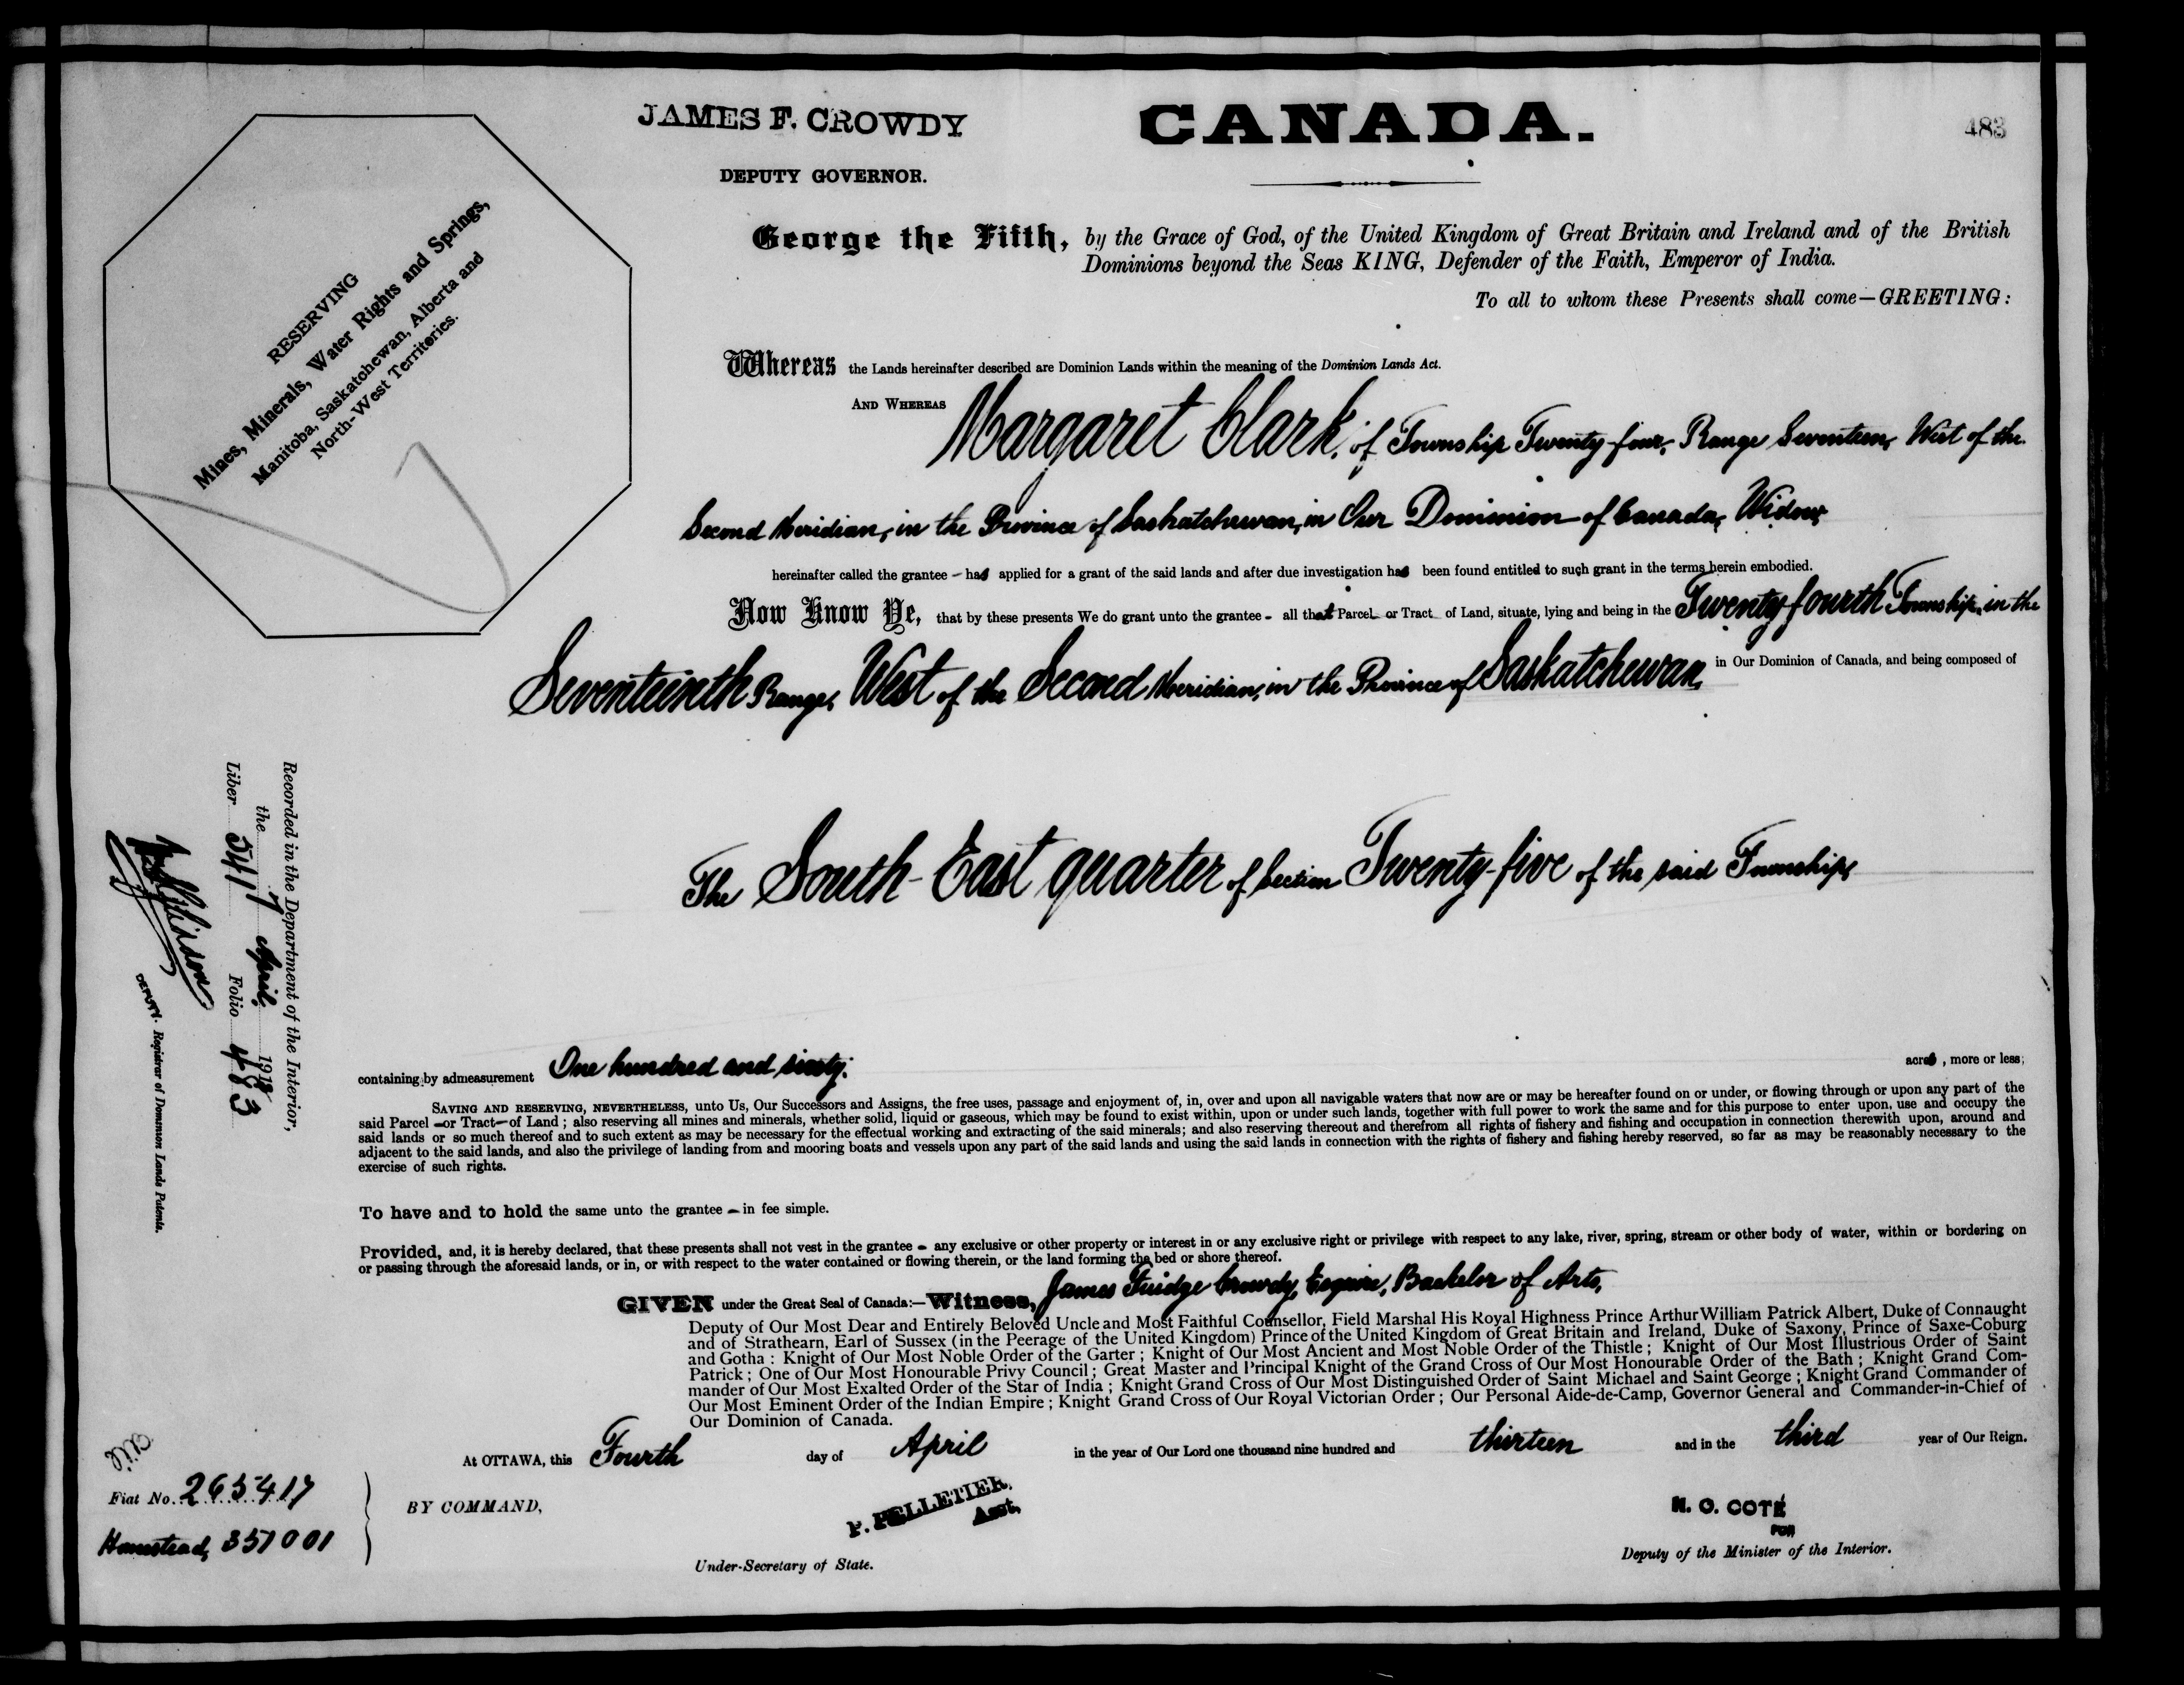 JAMES F. CROWDY
CANADA.
483
DEPUTY GOVERNOR.
RESERVING
Mines, Minerals, Water Rights and Springs,
Manitoba, Saskatchewan, Alberta and
North-West Territories.
George the Fifth, by the Grace of God, of the United Kingdom of Great Britain and Ireland and of the British
Dominions beyond the Seas KING, Defender of the Faith, Emperor of India.
To all to whom these Presents shall come—GREETING:
Whereas the Lands hereinafter described are Dominion Lands within the meaning of the Dominion Lands Act.
AND WHEREAS Margaret Clark, of Township Twenty-four, Range Seventeen, West of the
Second Meridian, in the Province of Saskatchewan, in Our Dominion of Canada, Widow
hereinafter called the grantee – has applied for a grant of the said lands and after due investigation has been found entitled to such grant in the terms herein embodied.
Now Know Ye, that by these presents We do grant unto the grantee – all that Parcel or Tract of Land, situate, lying and being in the Twenty-fourth Township, in the
Seventeenth Range, West of the Second Meridian, in the Province of Saskatchewan, in Our Dominion of Canada, and being composed of
The South-East quarter of Section Twenty-five of the said Township,
containing by admeasurement One hundred and sixty. acres, more or less;
SAVING AND RESERVING, NEVERTHELESS, unto Us, Our Successors and Assigns, the free uses, passage and enjoyment of, in, over and upon all navigable waters that now are or may be hereafter found on or under, or flowing through or upon any part of the
said Parcel – or Tract – of Land; also reserving all mines and minerals, whether solid, liquid or gaseous, which may be found to exist within, upon or under such lands, together with full power to work the same and for this purpose to enter upon, use and occupy the
said lands or so much thereof and to such extent as may be necessary for the effectual working and extracting of the said minerals; and also reserving thereout and therefrom all rights of fishery and fishing and occupation in connection therewith upon, around and
adjacent to the said lands, and also the privilege of landing from and mooring boats and vessels upon any part of the said lands and using the said lands in connection with the rights of fishery and fishing hereby reserved, so far as may be reasonably necessary to the
exercise of such rights.
To have and to hold the same unto the grantee – in fee simple.
Provided, and, it is hereby declared, that these presents shall not vest in the grantee – any exclusive or other property or interest in or any exclusive right or privilege with respect to any lake, river, spring, stream or other body of water, within or bordering on
or passing through the aforesaid lands, or in, or with respect to the water contained or flowing therein, or the land forming the bed or shore thereof.
GIVEN under the Great Seal of Canada:—Witness, James Fuidge Crowdy, Esquire, Bachelor of Arts,
Deputy of Our Most Dear and Entirely Beloved Uncle and Most Faithful Counsellor, Field Marshal His Royal Highness Prince Arthur William Patrick Albert, Duke of Connaught
and of Strathearn, Earl of Sussex (in the Peerage of the United Kingdom) Prince of the United Kingdom of Great Britain and Ireland, Duke of Saxony, Prince of Saxe-Coburg
and Gotha: Knight of Our Most Noble Order of the Garter; Knight of Our Most Ancient and Most Noble Order of the Thistle; Knight of Our Most Illustrious Order of Saint
Patrick; One of Our Most Honourable Privy Council; Great Master and Principal Knight of the Grand Cross of Our Most Honourable Order of the Bath; Knight Grand Com-
mander of Our Most Exalted Order of the Star of India; Knight Grand Cross of Our Most Distinguished Order of Saint Michael and Saint George; Knight Grand Commander of
Our Most Eminent Order of the Indian Empire; Knight Grand Cross of Our Royal Victorian Order; Our Personal Aide-de-Camp, Governor General and Commander-in-Chief of
Our Dominion of Canada.
At OTTAWA, this Fourth day of April in the year of Our Lord one thousand nine hundred and thirteen and in the third year of Our Reign.
BY COMMAND,
P. PELLETIER,
Asst,
Under-Secretary of State.
N. O. COTÉ
FOR
Deputy of the Minister of the Interior.
Fiat No. 265417
Homestead, 357001
Recorded in the Department of the Interior,
the 7 April 1913
Liber 541 Folio 483
DEPUTY. Registrar of Dominion Lands Patents.